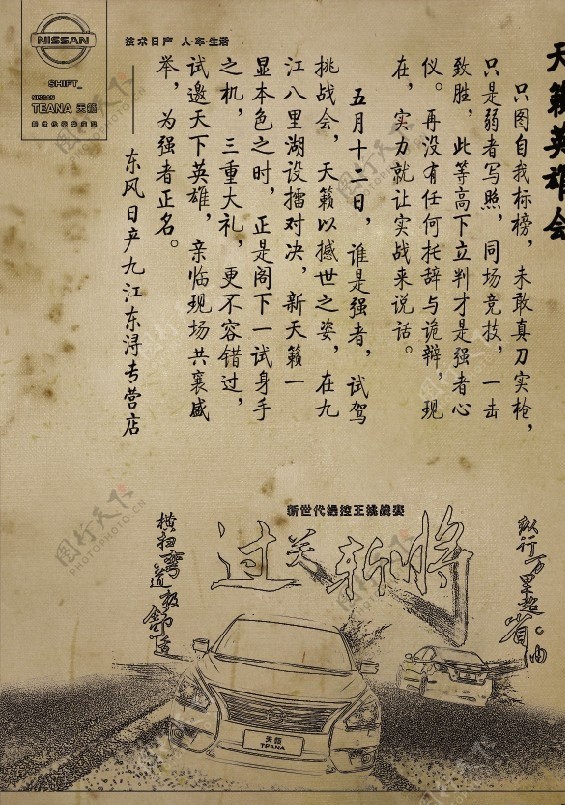 天籁英雄会
只图自我标榜，未敢真刀实枪，
只是弱者写照，同场竞技，一击
致胜，此等高下立判才是强者心
仪。再没有任何托辞与诡辩，现
在，实力就让实战来说话。
五月十二日，谁是强者，试驾
挑战会，天籁以撼世之姿，在九
江八里湖设擂对决，新天籁一
显本色之时，正是阁下一试身手
之机，三重大礼，更不容错过，
试邀天下英雄，亲临现场共襄盛
举，为强者正名。
——东风日产九江东浔专营店
NISSAN
SHIFT_
NISSAN
TEANA 天籁
技术日产 人·车·生活
新世代操控王挑战赛
过关斩将
横扫弯道最舒适
纵行万里超省油。
天籁
TEANA